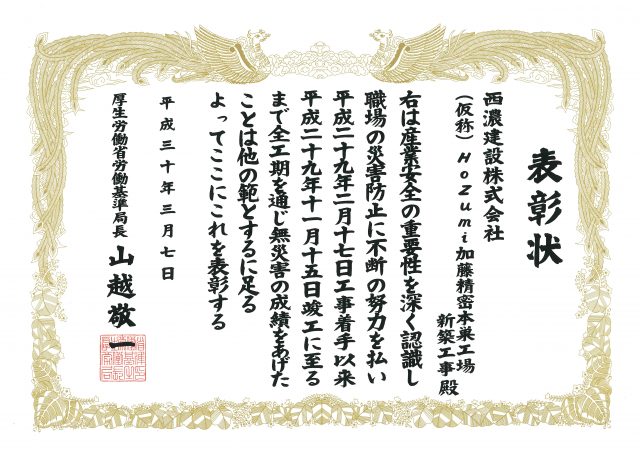 表彰状
西濃建設株式会社
(仮称)Hozumi加藤精密本巣工場
新築工事殿
右は産業安全の重要性を深く認識し
職場の災害防止に不断の努力を払い
平成二十九年二月十七日工事着手以来
平成二十九年十一月十五日竣工に至る
まで全工期を通じ無災害の成績をあげた
ことは他の範とするに足る
よってここにこれを表彰する
平成三十年三月七日
厚生労働省労働基準局長 山越敬一